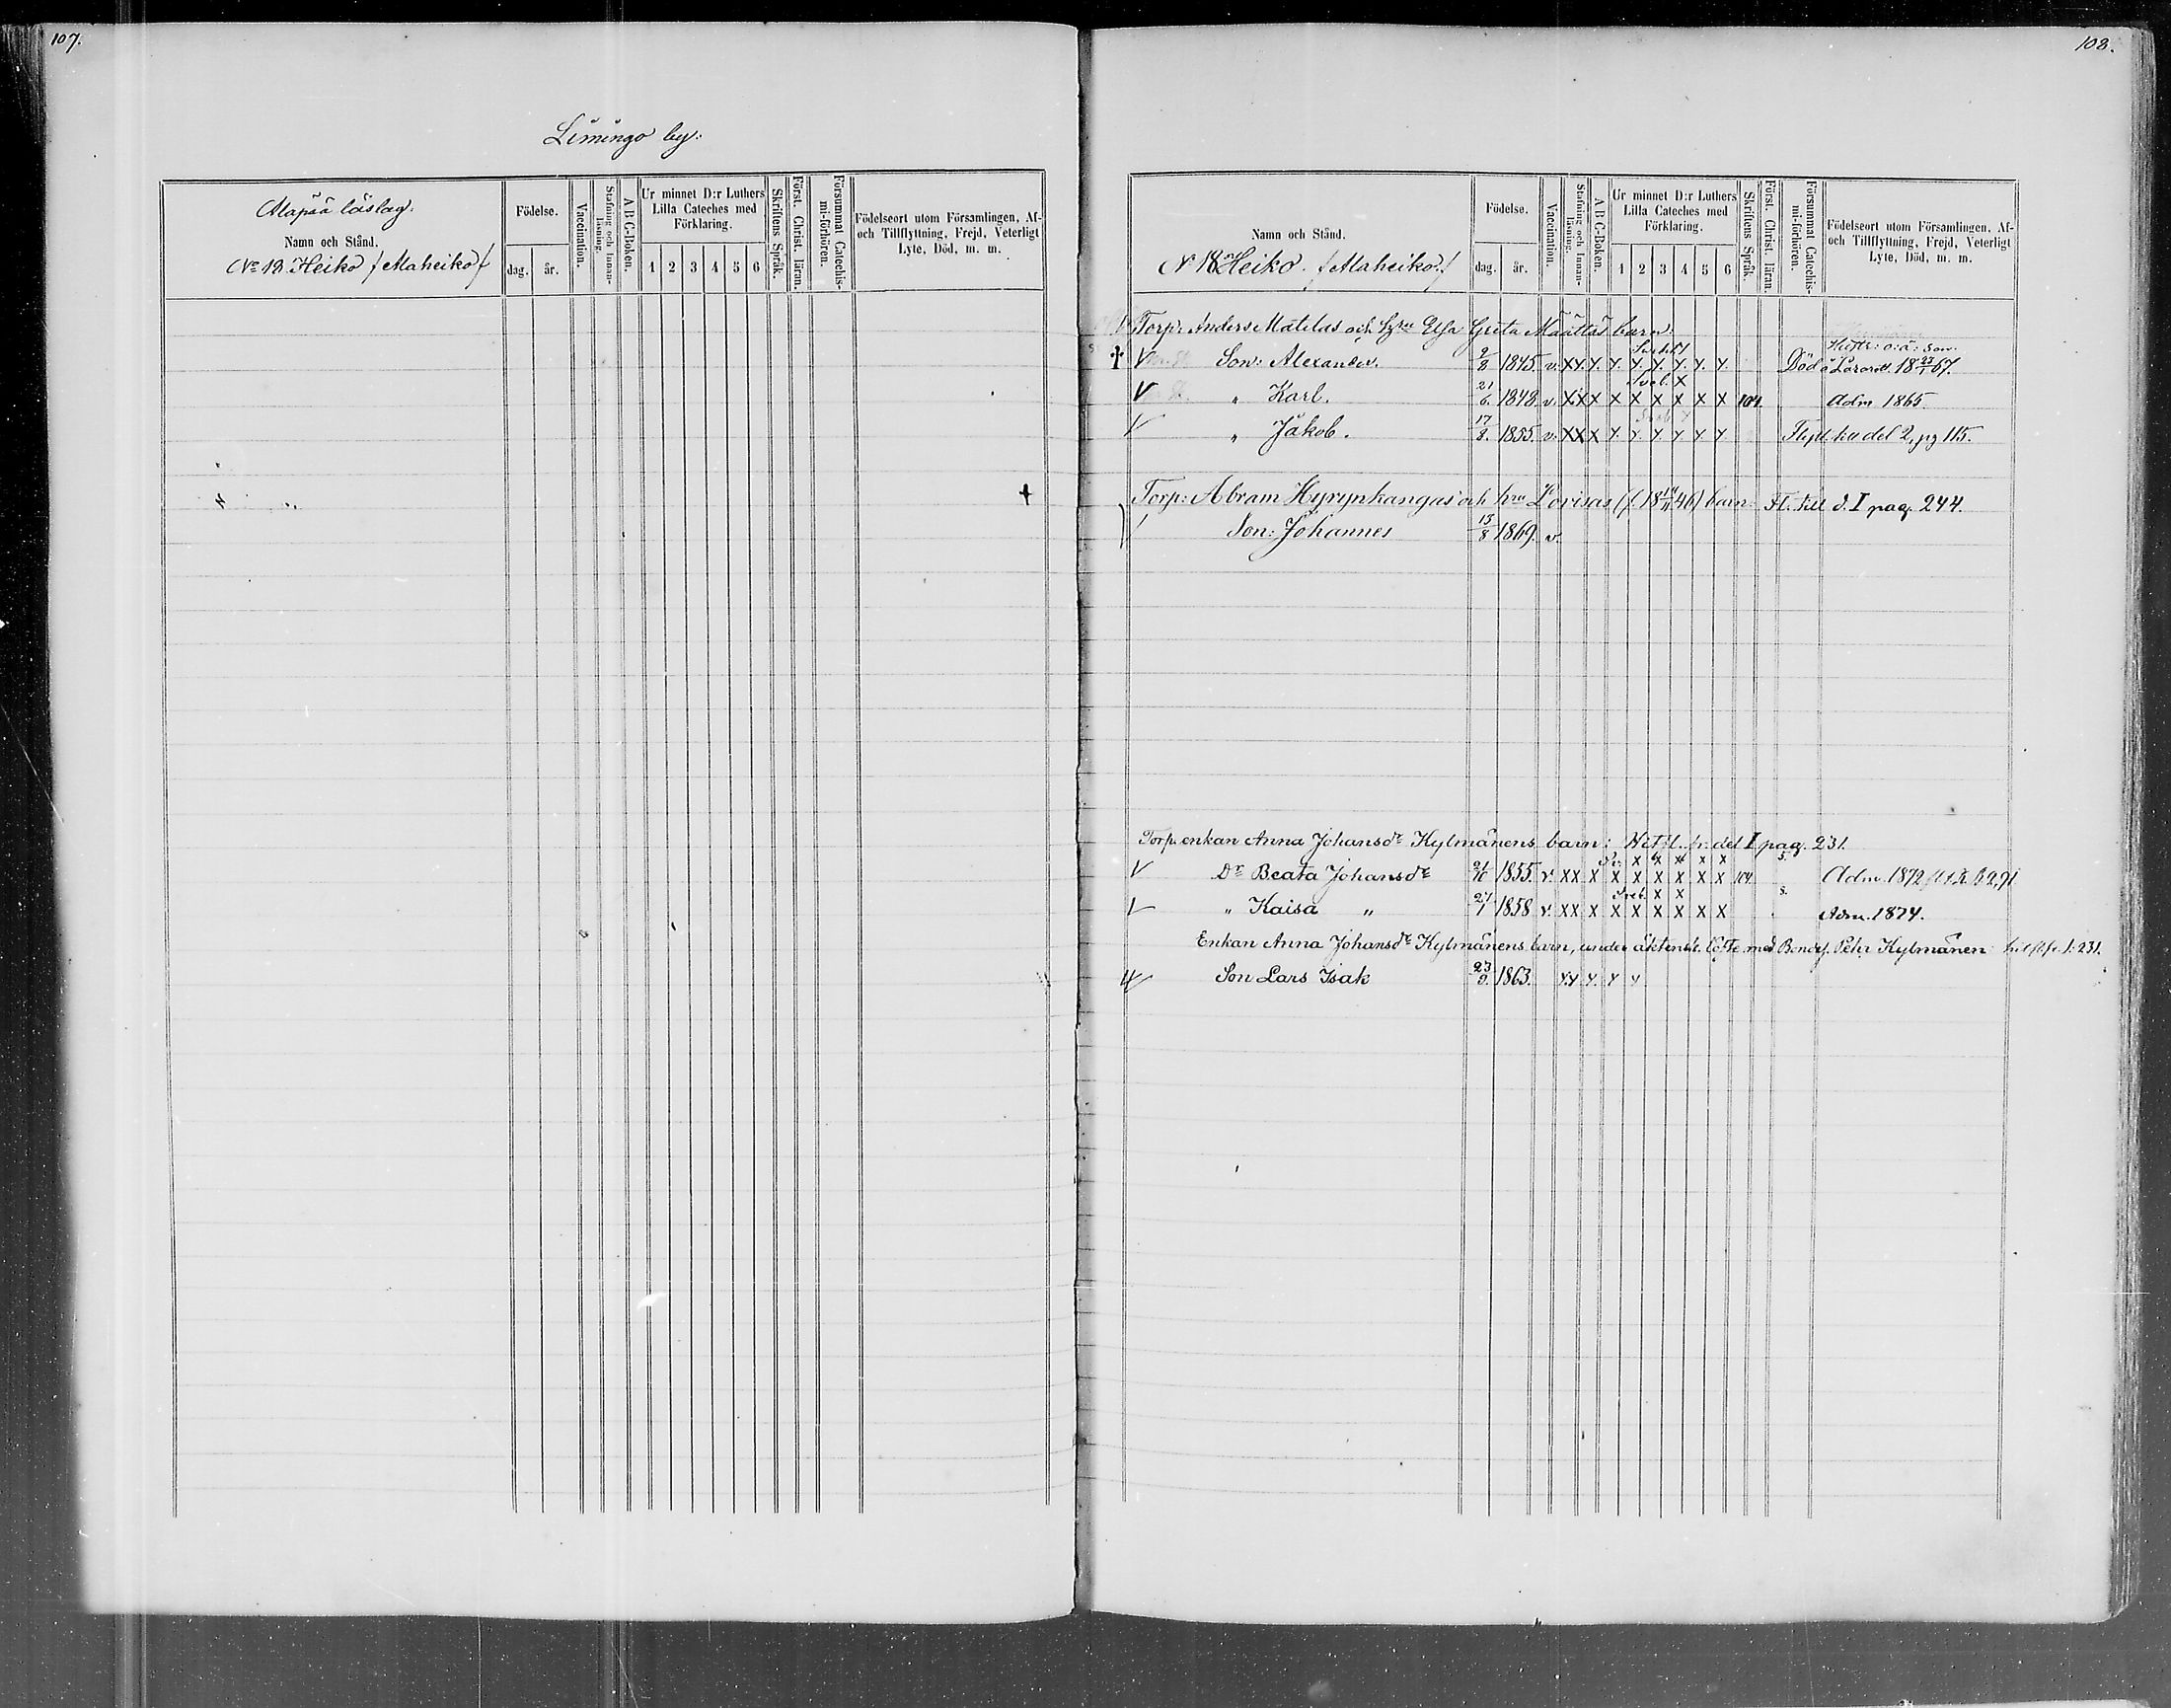 107.
Limingo by:
Alapää läslag.
Namn och Stånd.
No 18. Heiko /Alaheiko/
Födelse.
dag. år.
Vaccination.
Stafning och Innan-läsning.
A B C-Boken.
Ur minnet D:r Luthers Lilla Cateches med Förklaring.
1 2 3 4 5 6
Skriftens Språk.
Först. Christ. läran.
Försummat Catechis-mi-förhören.
Födelseort utom Församlingen, Af- och Tillflyttning, Frejd, Veterligt Lyte, Död, m. m.
108.
Namn och Stånd.
N 18 Heiko. /Alaheiko./
Födelse.
dag. år.
Vaccination.
Stafning och Innan-läsning.
A B C-Boken.
Ur minnet D:r Luthers Lilla Cateches med Förklaring.
1 2 3 4 5 6
Skriftens Språk.
Först. Christ. läran.
Försummat Catechis-mi-förhören.
Födelseort utom Församlingen, Af- och Tillflyttning, Frejd, Veterligt Lyte, Död, m. m.
Torp: Anders Matilas och Elsa Greta Määttäs barn:
Son: Alexander. 9/8 1845. v. Död å Lazarett. 18 23/1 67.
" Karl. 21/6. 1848. v. X X X X X X X X X 104. Adm 1865.
" Jakob. 17/8. 1855. v. X X X Flytt. till del 2, pg 115.
Torp: Abram Hyrynkangas och hru Lovisas (f. 18 14/11 46) barn: Fl. till d. I pag. 244.
Son: Johannes 13/8 1869. v.
Torp. enkan Anna Johansdr Kylmänens barn: del I pag. 231.
Dr Beata Johansdr 21/10 1855. v. X X X X X X X X X 104 Adm. 1872
" Kaisa " 27/1 1858 v. X X X X X X X X X Adm. 1874.
Enkan Anna Johansdr Kylmänens barn, under äktensk. löfte med Bondes. Pehr Kylmänen 1: 231.
Son Lars Isak 23/9. 1863.